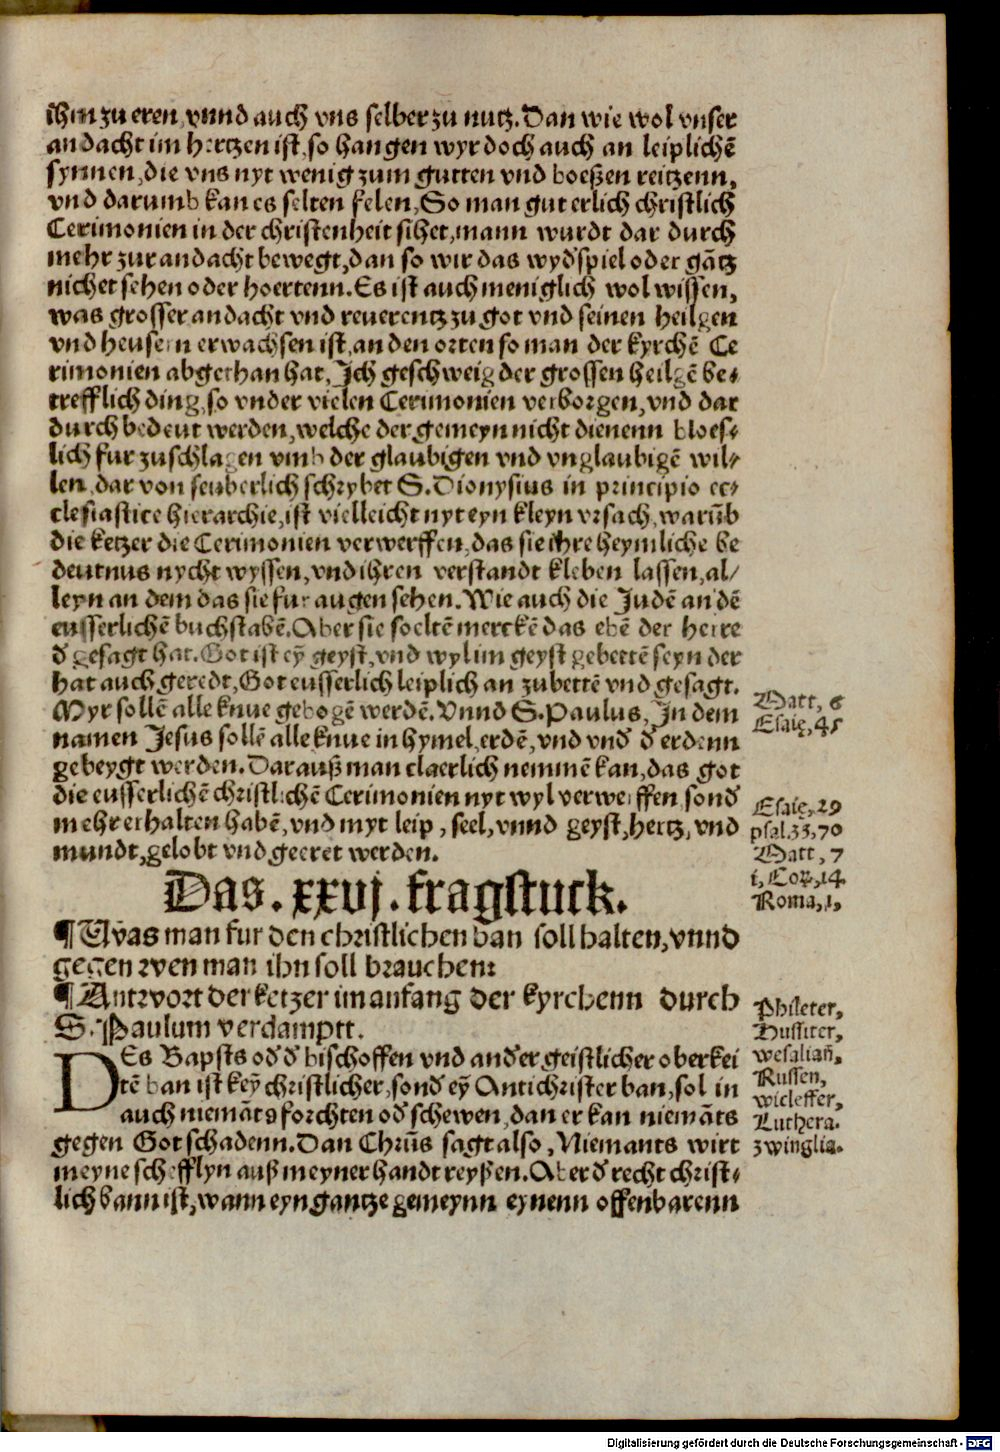 ihm zu eren, vnnd auch vns selber zu nutz. Dan wie wol vnser
andacht im hertzen ist, so hangen wyr doch auch an leiplichē
synnen, die vns nyt wenig zum gutten vnd boeßen reitzenn,
vnd darumb kan es selten felen, So man gut erlich christlich
Cerimonien in der christenheit sihet, mann wurdt dar durch
mehr zur andacht bewegt, dan so wir das wydspiel oder gātz
nichet sehen oder hoertenn. Es ist auch meniglich wol wissen,
was grosser andacht vnd reuerentz zu got vnd seinen heilgen
vnd heusern erwachsen ist, an den orten so man der kyrchē Ce
rimonien abgethan hat, Ich geschweig der grossen heilgē be⸗
trefflich ding, so vnder vielen Cerimonien verborgen, vnd dar
durch bedeut werden, welche der gemeyn nicht dienenn bloes⸗
lich fur zuschlagen vmb der glaubigen vnd vnglaubigē wil⸗
len, dar von seuberlich schrybet S. Dionysius in principio ec⸗
clesiastice hierarchie, ist vielleicht nyt eyn kleyn vrsach, warūb
die ketzer die Cerimonien verwerffen, das sie ihre heymliche be
deutnus nycht wyssen, vnd ihren verstandt kleben lassen, al/
leyn an dem das sie fur augen sehen. Wie auch die Judē an dē
eusserlichē buchstabē. Aber sie soeltē merckē das ebē der herre
d̓ gesagt hat. Got ist eȳ geyst, vnd wyl im geyst gebettē seyn der
hat auch geredt, Got eusserlich leiplich an zubettē vnd gesagt.
Myr sollē alle knue gebogē werdē. Vnnd S. Paulus, In dem
namen Jesus sollē alle knue in hymel, erdē, vnd vnd̓ d̓ erdenn
gebeygt werden. Darauß man claerlich nemmē kan, das got
die eusserlichē christlichē Cerimonien nyt wyl verwerffen, sond̓
mehr erhalten habē, vnd myt leip, seel, vnnd geyst, hertz, vnd
mundt, gelobt vnd geeret werden.
Matt, 6
Esaię, 45
Esaię, 29
psal. 33, 70
Matt, 7
i, Cor, 14.
Roma, 1,
Das. xxvj. fragstuck.
¶ Was man fur den christlichen ban soll halten, vnnd
gegen wen man ihn soll brauchen:
¶ Antwort der ketzer im anfang der kyrchenn durch
S. Paulum verdamptt.
DEs Bapsts od̓ d̓ bischoffen vnd and̓er geistlicher oberkei
tē ban ist keȳ christlicher, sond̓ eȳ Antichrister ban, sol in
auch niemāts forchten od̓ schewen, dan er kan niemāts
gegen Got schadenn. Dan Chrūs sagt also, Niemants wirt
meyne schefflyn auß meyner handt reyßen. Aber d̓ recht christ⸗
lich bann ist, wann eyn gantze gemeynn eynenn offenbarenn
Phileter,
Hussiter,
wesaliañ,
Russen,
wicleffer,
Luthera.
zwinglia.
Digitalisierung gefördert durch die Deutsche Forschungsgemeinschaft - DFG